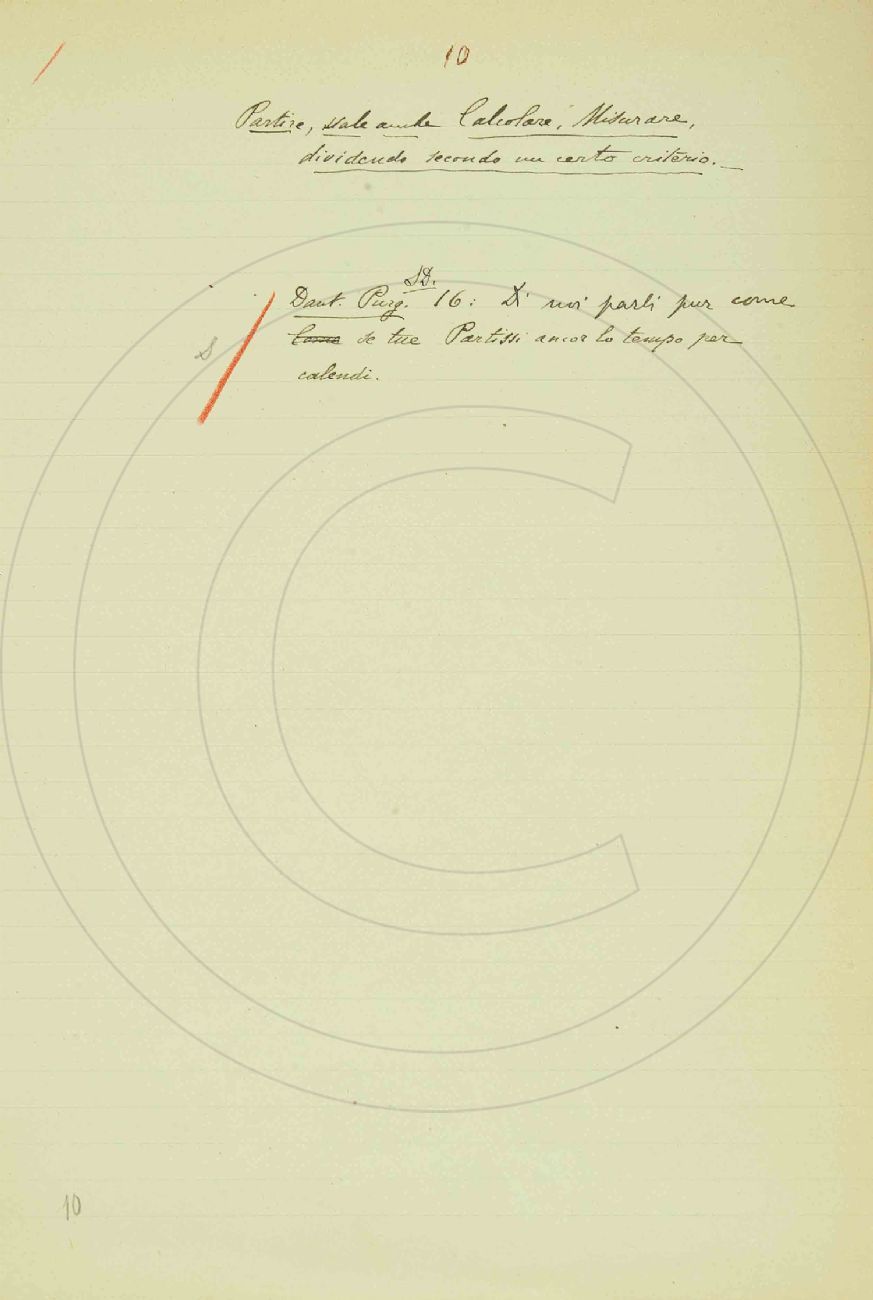 10
Partire, vale anche Calcolare, Misurare,
dividendo secondo un certo criterio.
SD.
Dant. Purg. 16: Di noi parli pur come
Come se tue Partissi ancor lo tempo per
S
calendi.
10